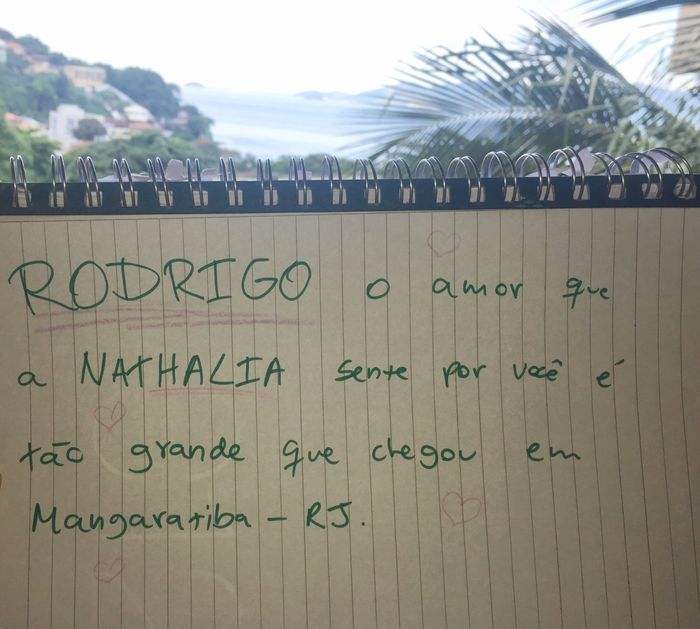 RODRIGO o amor que
a NATHALIA sente por você é
tão grande que chegou em
Mangaratiba - RJ.